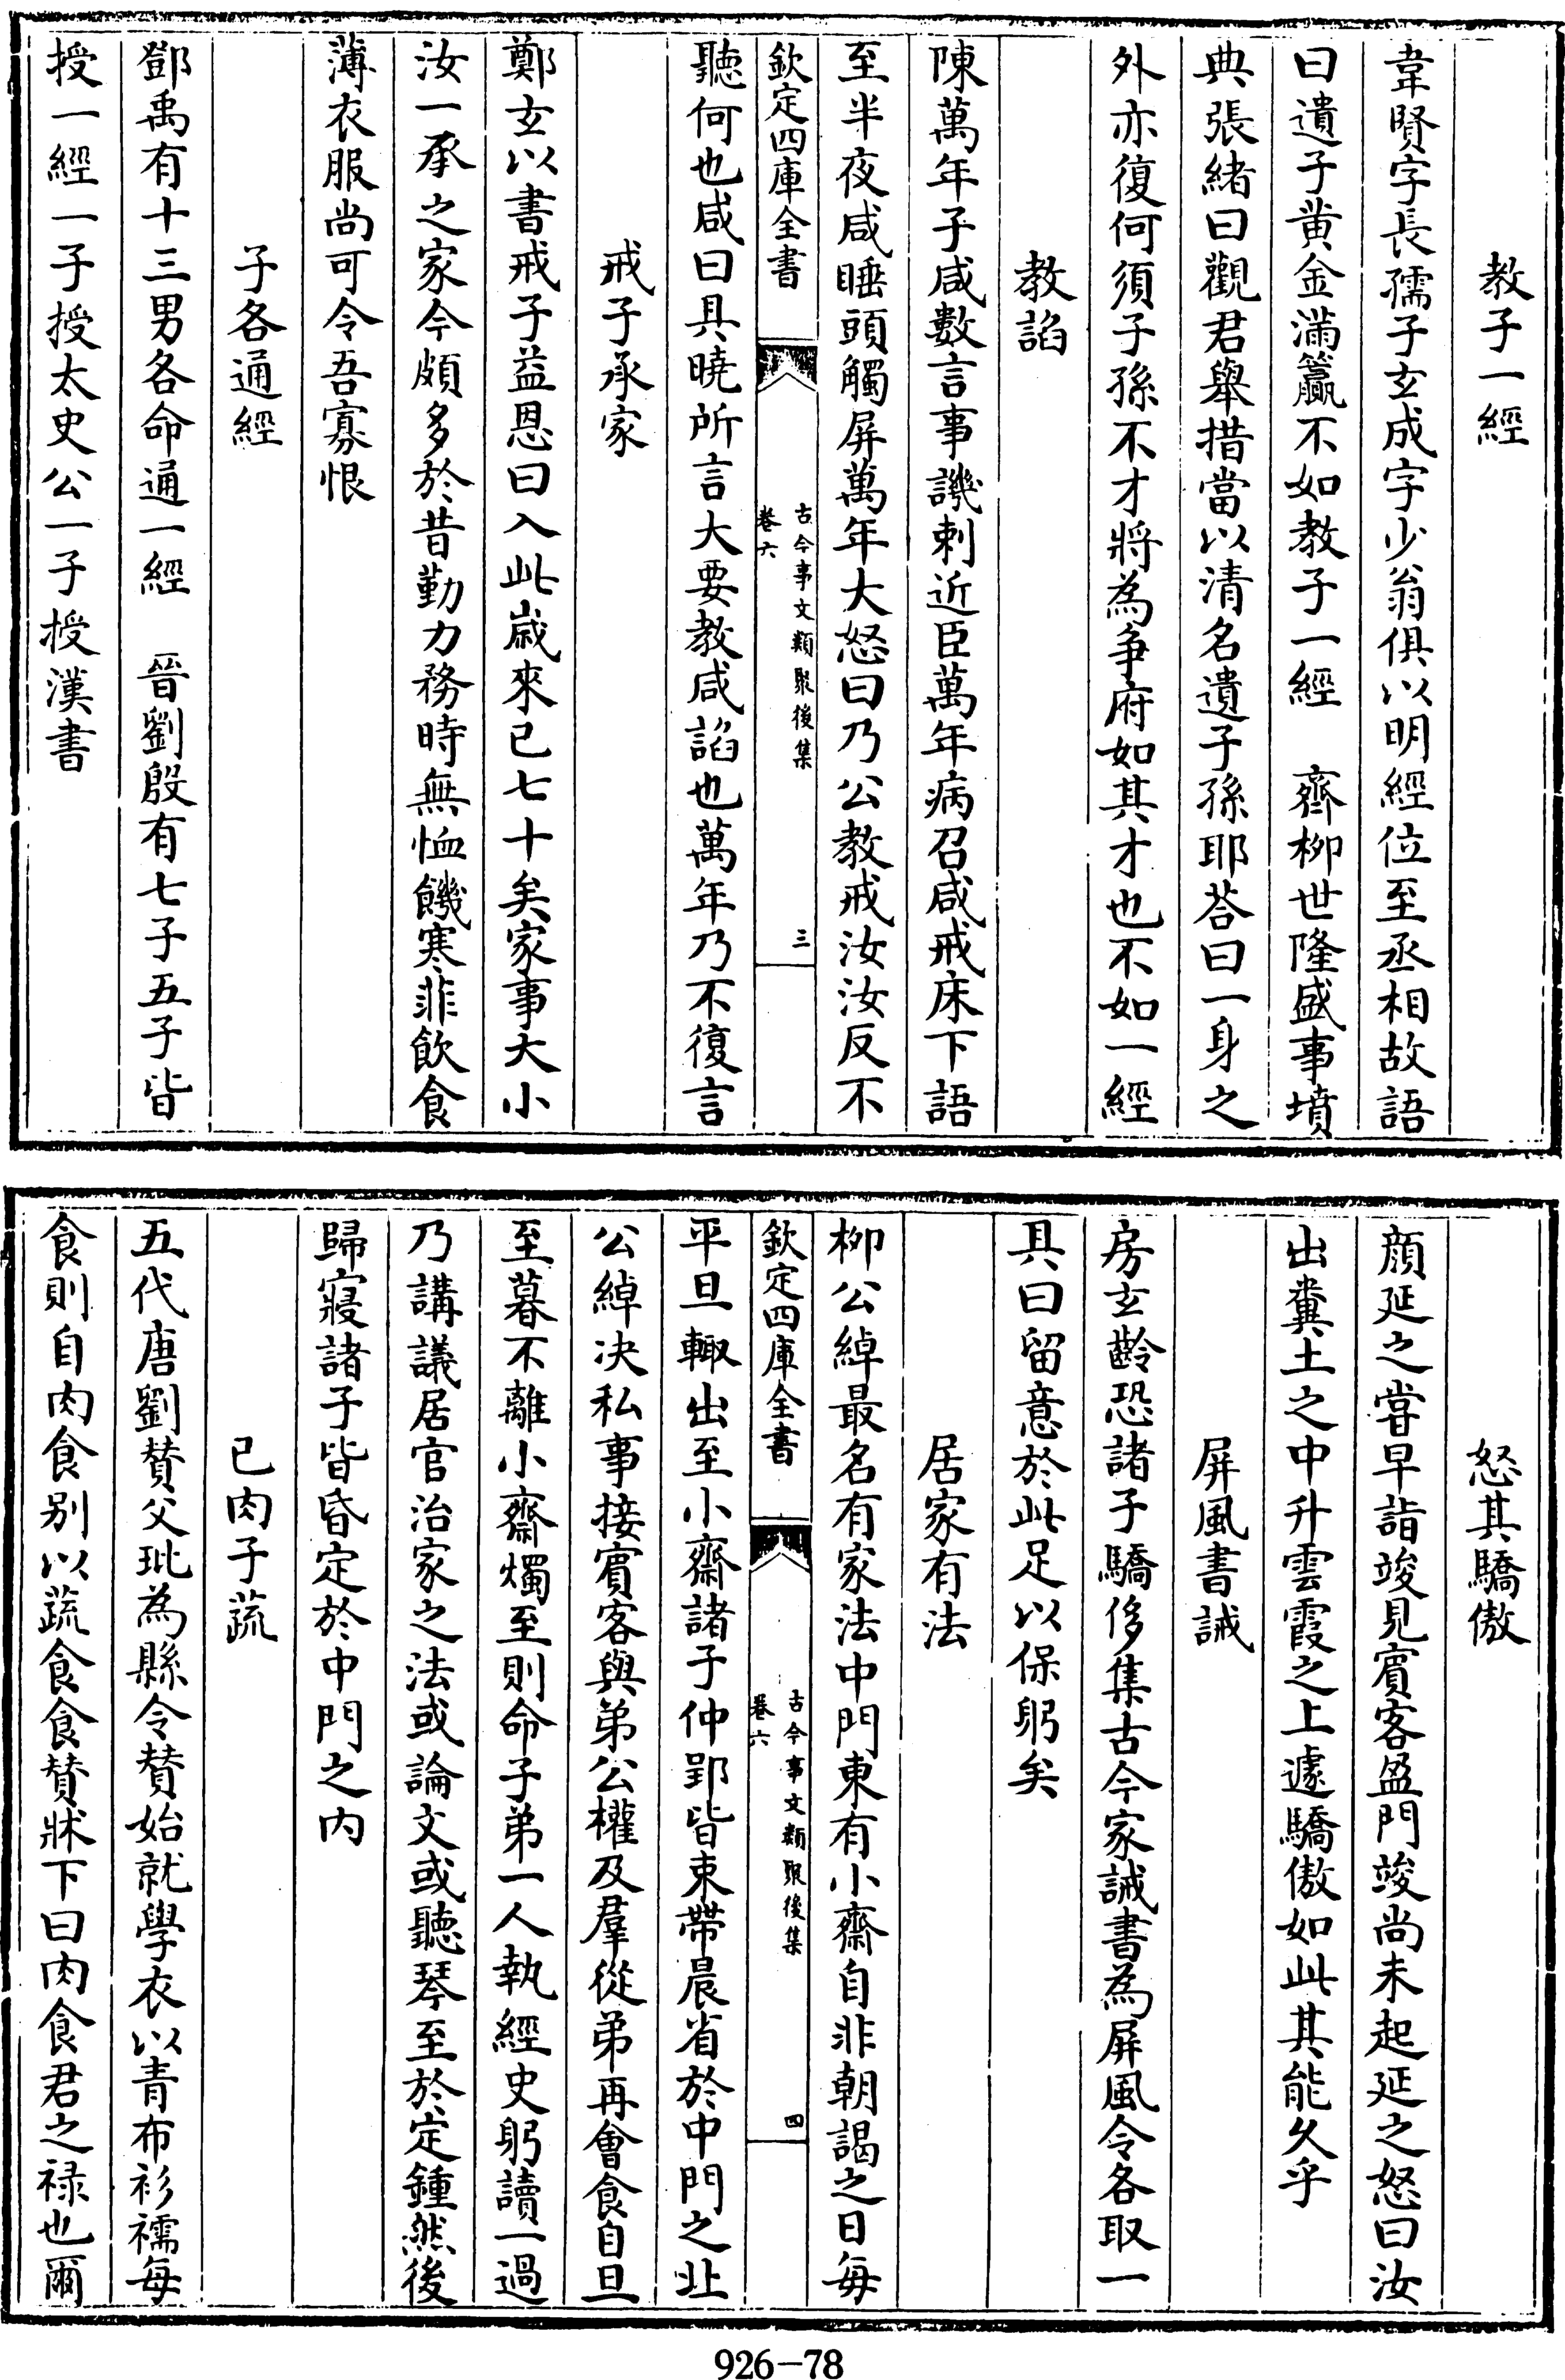 教子一經
韋賢字長孺子玄成字少翁俱以明經位至丞相故語
曰遺子黄金滿籯不如教子一經　齊柳世隆盛事墳
典張緒曰觀君舉措當以清名遺子孫耶荅曰一身之
外亦復何須子孫不才將為争府如其才也不如一經
教諂
陳萬年子咸數言事譏刺近臣萬年病召咸戒床下語
至半夜咸睡頭觸屏萬年大怒曰乃公教戒汝汝反不
欽定四庫全書
古今事文類聚後集
卷六
三
聽何也咸曰具曉所言大要教咸諂也萬年乃不復言
戒子承家
鄭玄以書戒子益恩曰入此嵗來已七十矣家事大小
汝一承之家今頗多於昔勤力務時無恤饑寒菲飲食
薄衣服尚可令吾寡恨
子各通經
鄧禹有十三男各命通一經　晉劉殷有七子五子皆
授一經一子授太史公一子授漢書
怒其驕傲
顔延之嘗早詣竣見賓客盈門竣尚未起延之怒曰汝
出糞土之中升雲霞之上遽驕傲如此其能久乎
屏風書誡
房玄齡恐諸子驕侈集古今家誡書為屏風令各取一
具曰留意於此足以保躬矣
居家有法
柳公綽最名有家法中門東有小齋自非朝謁之日每
欽定四庫全書
古今事文類聚後集
卷六
四
平旦輙出至小齋諸子仲郢皆束帶晨省於中門之北
公綽决私事接賓客與弟公權及羣從弟再會食自旦
至暮不離小齋燭至則命子弟一人執經史躬讀一過
乃講議居官治家之法或論文或聽琴至於定鍾然後
歸寢諸子皆昏定於中門之内
已肉子蔬
五代唐劉贊父玭為縣令贊始就學衣以青布衫襦每
食則自肉食别以蔬食食贊牀下曰肉食君之禄也爾
926-78